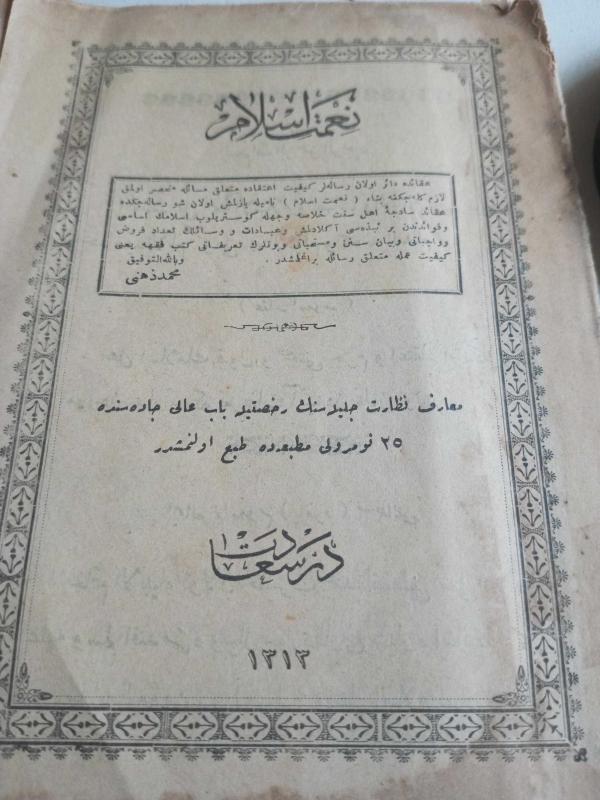 نعمت اسلام
عقائده دائر اولان رساله‌لر كيفيت اعتقاده متعلق مسائله منحصر اولمق
لازم كله‌جكنه بناء ( نعمت اسلام ) ناميله يازلمش اولان شو رساله‌جكده
عقائد ساده‌ٔ اهل سنت خلاصه وجهله كوستريلوب اسلامك اساسى
وفوائدندن بر نبذه‌سى آكلادلمش وعبادات و وسائلك تعداد فروض
وواجباتى وبيان سنن ومستحباتى وبونلرك تعريفاتى كتب فقهه يعنى
كيفيت عمله متعلق رسائله براغلمشدر . وبالله التوفيق
محمد ذهنى
معارف نظارت جليله‌سنك رخصتيله باب عالى جاده‌سنده
٢٥ نومرولى مطبعه‌ده طبع اولنمشدر
درسعادت
١٣١٣